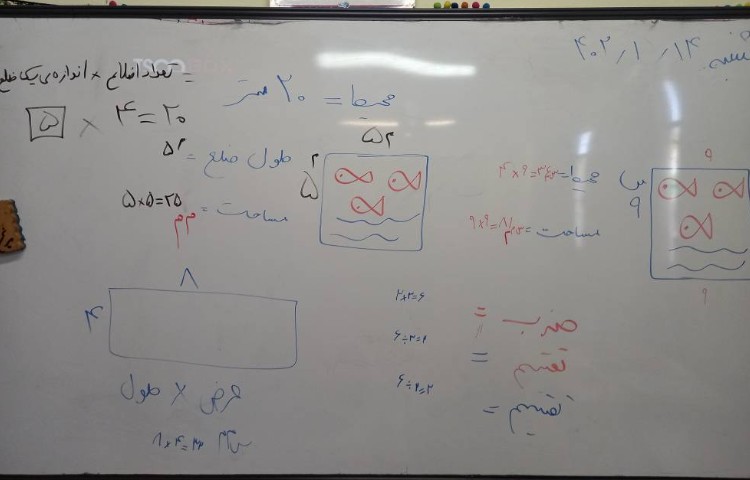 ۱۴۰۲ / ۱ / ۱۴
تعداد اضلاع × اندازه‌ی یک ضلع =
۵ × ۴ = ۲۰
محیط = ۲۰ متر
۵م
۵م
طول ضلع = ۵م
مساحت = ۵×۵=۲۵
م م
۹
س
۹
۹
محیط = ۹×۴
مساحت = ۹×۹=۸۱
۸
۴
عرض × طول
۲×۳=۶
۶÷۳=۲
۶÷۲=۳
ضرب =
تقسیم =
تقسیم =